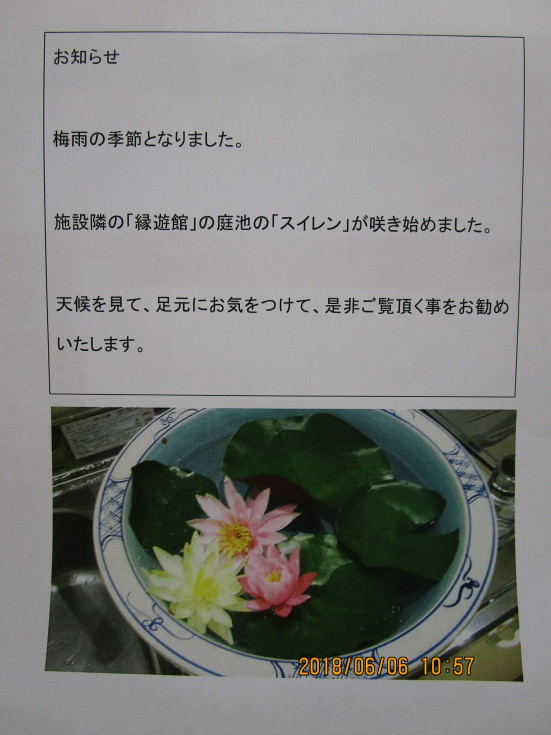 お知らせ
梅雨の季節となりました。
施設隣の「縁遊館」の庭池の「スイレン」が咲き始めました。
天候を見て、足元にお気をつけて、是非ご覧頂く事をお勧め
いたします。
2018/06/06 10:57